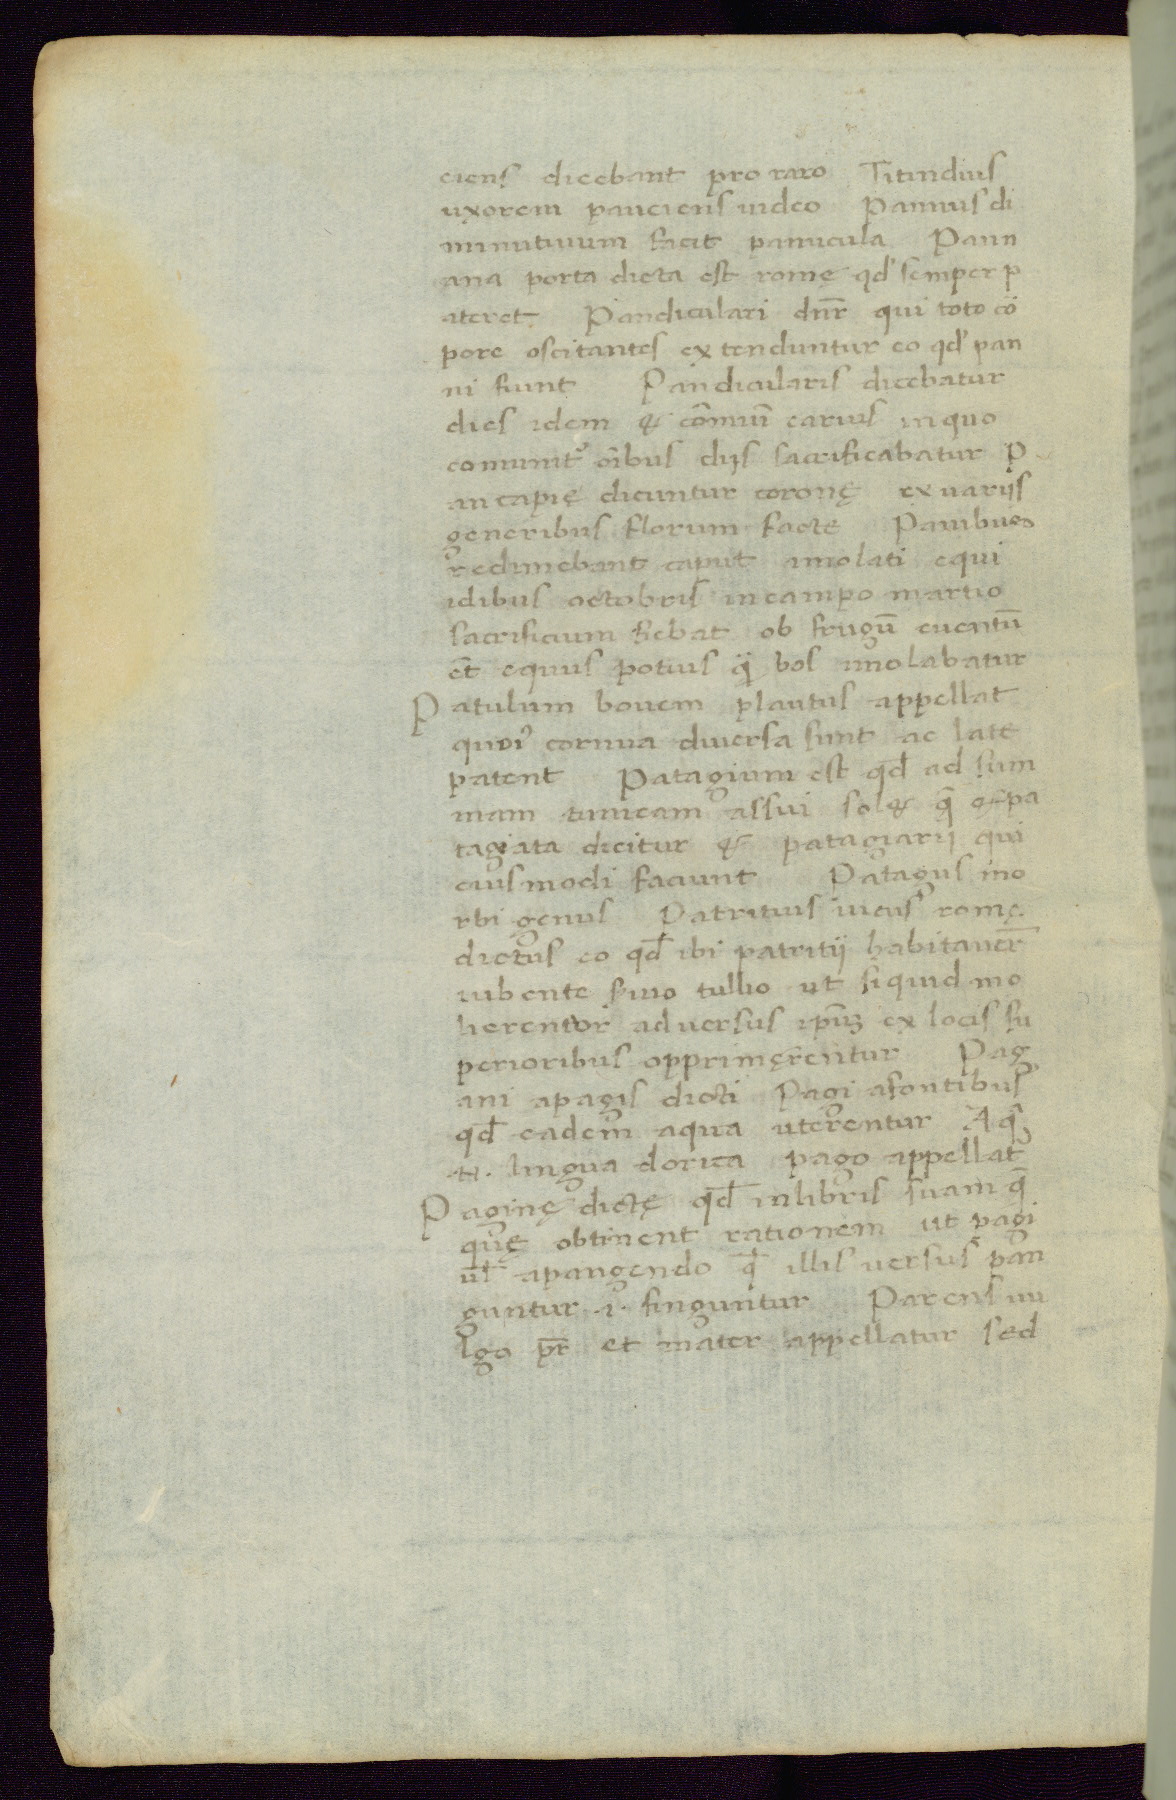 ciens dicebant pro raro Titindius
uxorem pauciens uideo Pannus di
minutiuum facit panucula Pann
ana porta dicta est romę qđ semper p
ateret Pandiculari dnr̄ qui toto cō
pore oscitantes extenduntur eo qđ pan
ni fiunt Pandicularis dicebatur
dies idem & cōmunī carius in quo
comunit᷑ oībus diis sacrificabatur P
ancapię dicuntur coronę ex uariis
generibus florum facte Panibus
redimebant caput imolati equi
idibus octobris in campo martio
sacrificium fiebat ob frugū euentū
et equus potius q̄ bos imolabatur
Patulum bouem plautus appellat
quoī cornua diuersa sunt ac late
patent Patagium est qđ ad sum
mam tunicam assui sol& q̄ & pa
tagiata dicitur & patagiarii qui
eiusmodi faciunt Patagus mo
rbi genus Patritius uicus romę
dictus eo qđ ibi patritii habitauer̄
iubente suio tullio ut siquid mo
lierentor aduersus ipsū ex locis su
perioribus opprimerentur Pag
ani apagis dicti Pagi afontibus
qđ eadem aqua uterentur Aq̄
.n. lingua dorica pago appellat̄
Paginę dictę qđ inlibris suam q̄
quę obtinent rationem ut pagi
ul̄ apangendo q̄ illis uersus pan
guntur .i. finguntur Parens uu
lgo pr̄ et mater appellatur sed